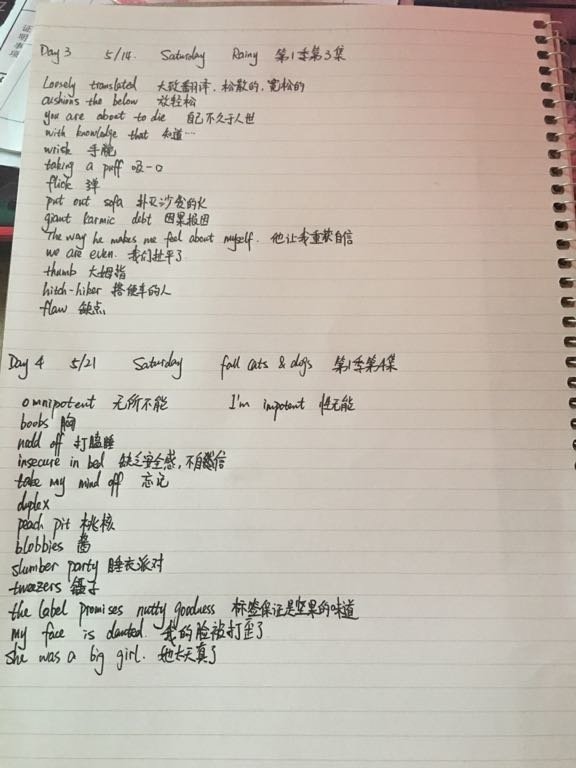 证明事项
Day 3 5/14. Saturday Rainy 第1季第3集
Loosely translated 大致翻译, 松散的, 宽松的
cushions the below 放轻松
you are about to die 自己不久于人世
with knowledge that 知道…
wrisk 手腕
taking a puff 吸一口
flick 弹
put out sofa 扑灭沙发的火
giant karmic debt 因果报因
The way he makes me feel about myself. 他让我重获自信
we are even. 我们扯平了
thumb 大姆指
hitch-hiker 搭便车的人
flaw 缺点
Day 4 5/21 Saturday fall cats & dogs 第1季第4集
omnipotent 无所不能 I'm impotent 性无能
boobs 胸
nodd off 打瞌睡
insecure in bed 缺乏安全感, 不自信
take my mind off 忘记
duplex
peach pit 桃核
blobbies 酱
slumber party 睡衣派对
tweezers 镊子
the label promises nutty goodness 标签保证是坚果的味道
my face is dented. 我的脸被打歪了
she was a big girl. 她太天真了